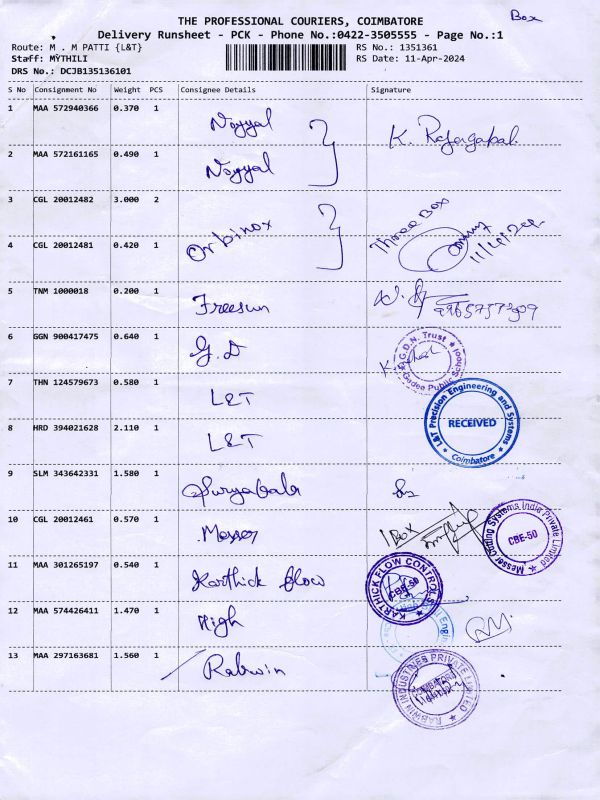 THE PROFESSIONAL COURIERS, COIMBATORE
Box
Delivery Runsheet - PCK - Phone No.:0422-3505555 - Page No.:1
Route: M . M PATTI {L&T}
RS No.: 1351361
Staff: MYTHILI
RS Date: 11-Apr-2024
DRS No.: DCJB135136101
S No Consignment No Weight PCS Consignee Details Signature
1 MAA 572940366 0.370 1 Noyyal K. Rajagopal
2 MAA 572161165 0.490 1 Noyyal
3 CGL 20012482 3.000 2 Three Box
4 CGL 20012481 0.420 1 Orbinox
5 TNM 1000018 0.200 1 Freesun
6 GGN 900417475 0.640 1 G.D
G.D.N. Trust
Gudea Public School
7 THN 124579673 0.580 1 L&T
L&T Precision Engineering and Systems
RECEIVED
Coimbatore
8 HRD 394021628 2.110 1 L&T
9 SLM 343642331 1.580 1 Suryabala
10 CGL 20012461 0.570 1 Messer 1 Box
Messer Cutting Systems India Private Limited
CBE-50
11 MAA 301265197 0.540 1 Karthick flow
KARTHICK FLOW CONTROLS
CBE-50
12 MAA 574426411 1.470 1 High
13 MAA 297163681 1.560 1 Rabwin
RABWIN INDUSTRIES PRIVATE LIMITED